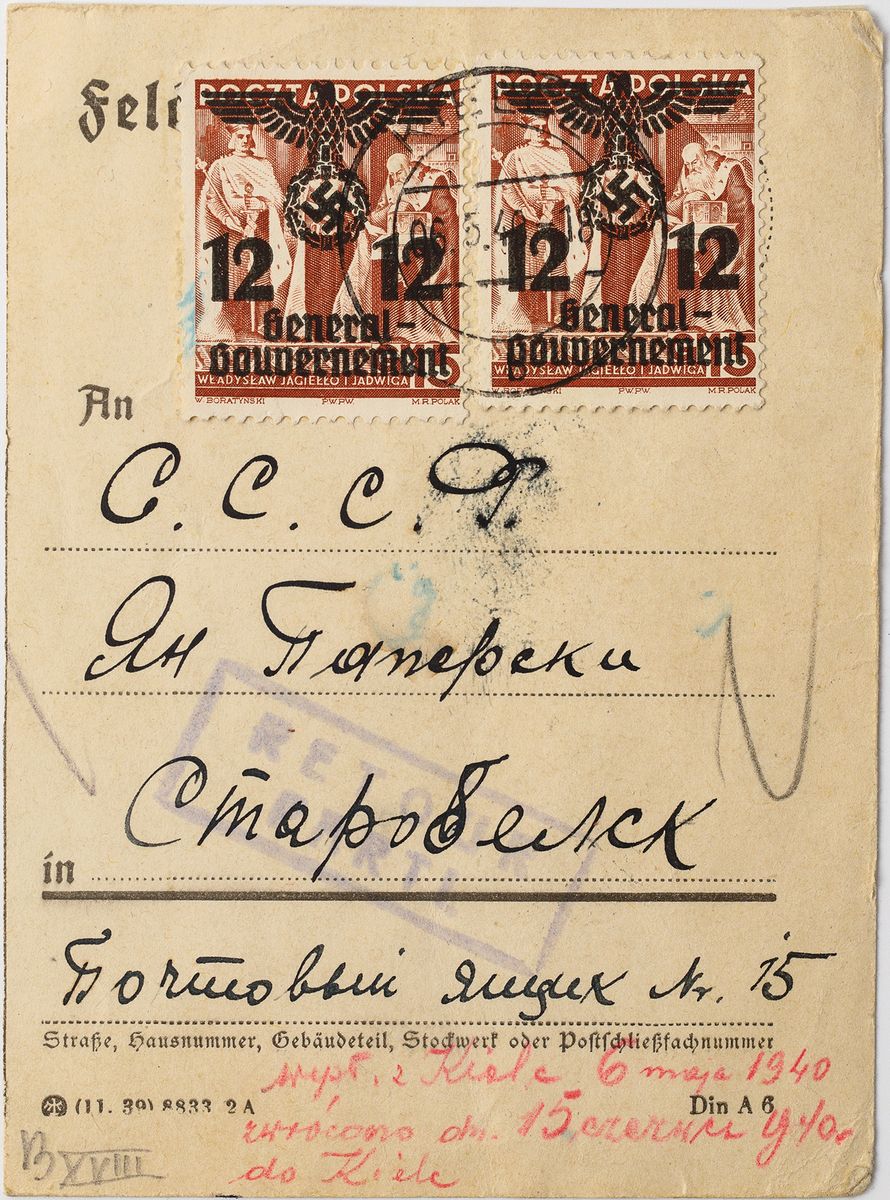 POCZTA POLSKA POCZTA POLSKA
Feld
12 12 12 12
General- General-
Gouvernement Gouvernement
15 15
WŁADYSŁAW JAGIEŁŁO I JADWIGA WŁADYSŁAW JAGIEŁŁO I JADWIGA
W. BORATYŃSKI P.W.P.W. M.R. POLAK P.W.P.W. M.R. POLAK
An
С. С. С. Р.
Ян Паперски
RETOUR
PARTI
Старобельск
in
Почтовый ящик Nr. 15
Straße, Hausnummer, Gebäudeteil, Stockwerk oder Postschließfachnummer
wysł. z Kielc 6 maja 1940
(11. 39) 8833 2A Din A 6
zwrócono dn. 15 czerwca 1940r
do Kielc
B XVIII